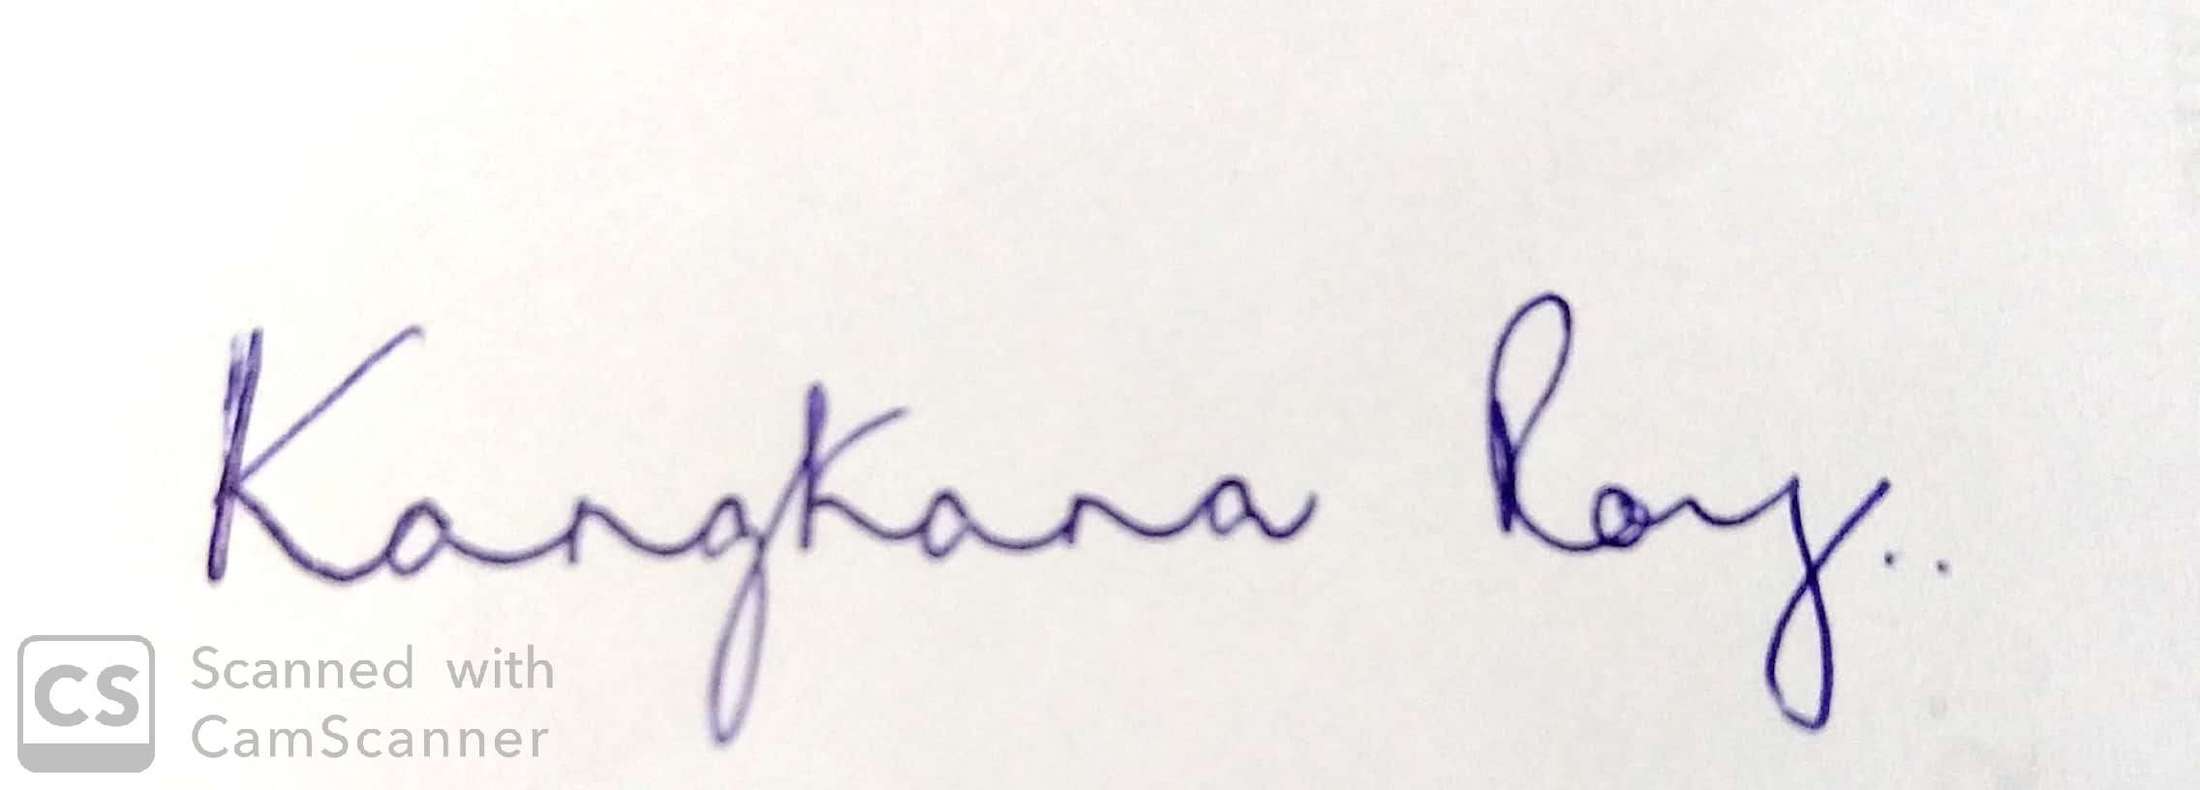 Kangkana Roy..
CS
Scanned with
CamScanner